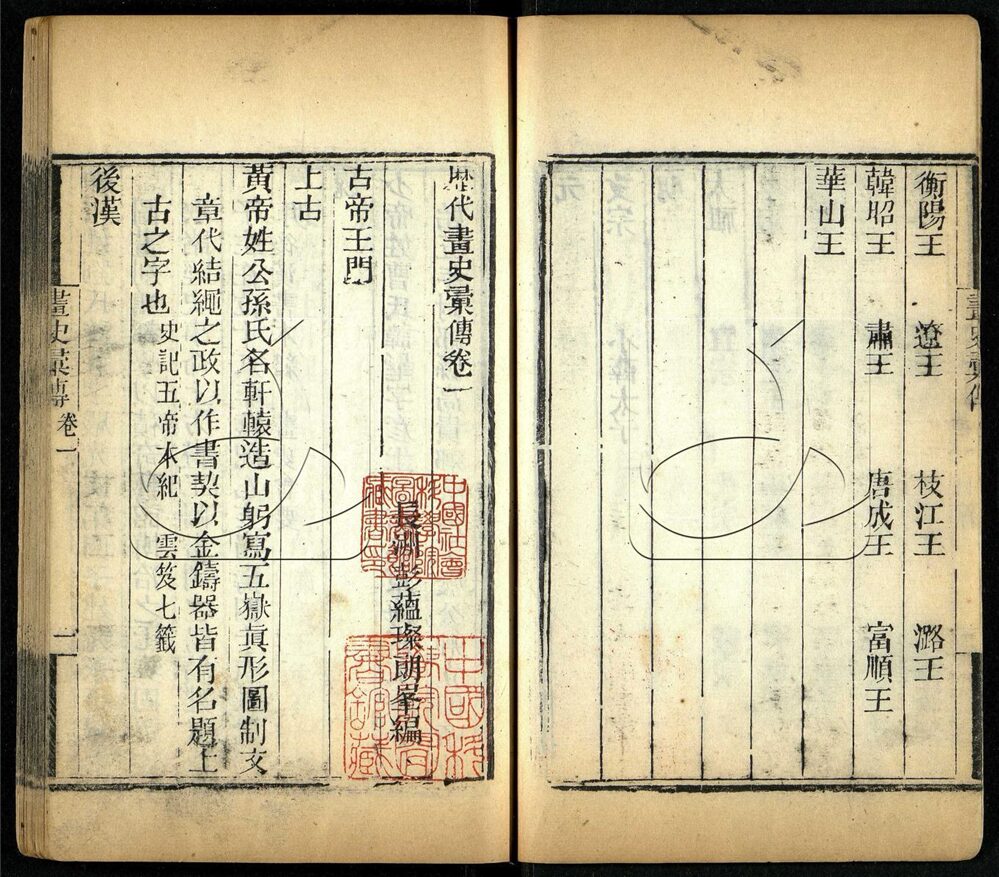 衡陽王 遼王 枝江王 潞王
韓昭王 肅王 唐成王 富順王
華山王
歷代畫史彙傳卷一
長洲彭蘊璨朗峯編
古帝王門
上古
黃帝姓公孫氏名軒轅造山躬寫五嶽眞形圖制文
章代結繩之政以作書契以金鑄器皆有名題上
古之字也 史記五帝本紀 雲笈七籤
後漢
畫史彙傳 卷一 一